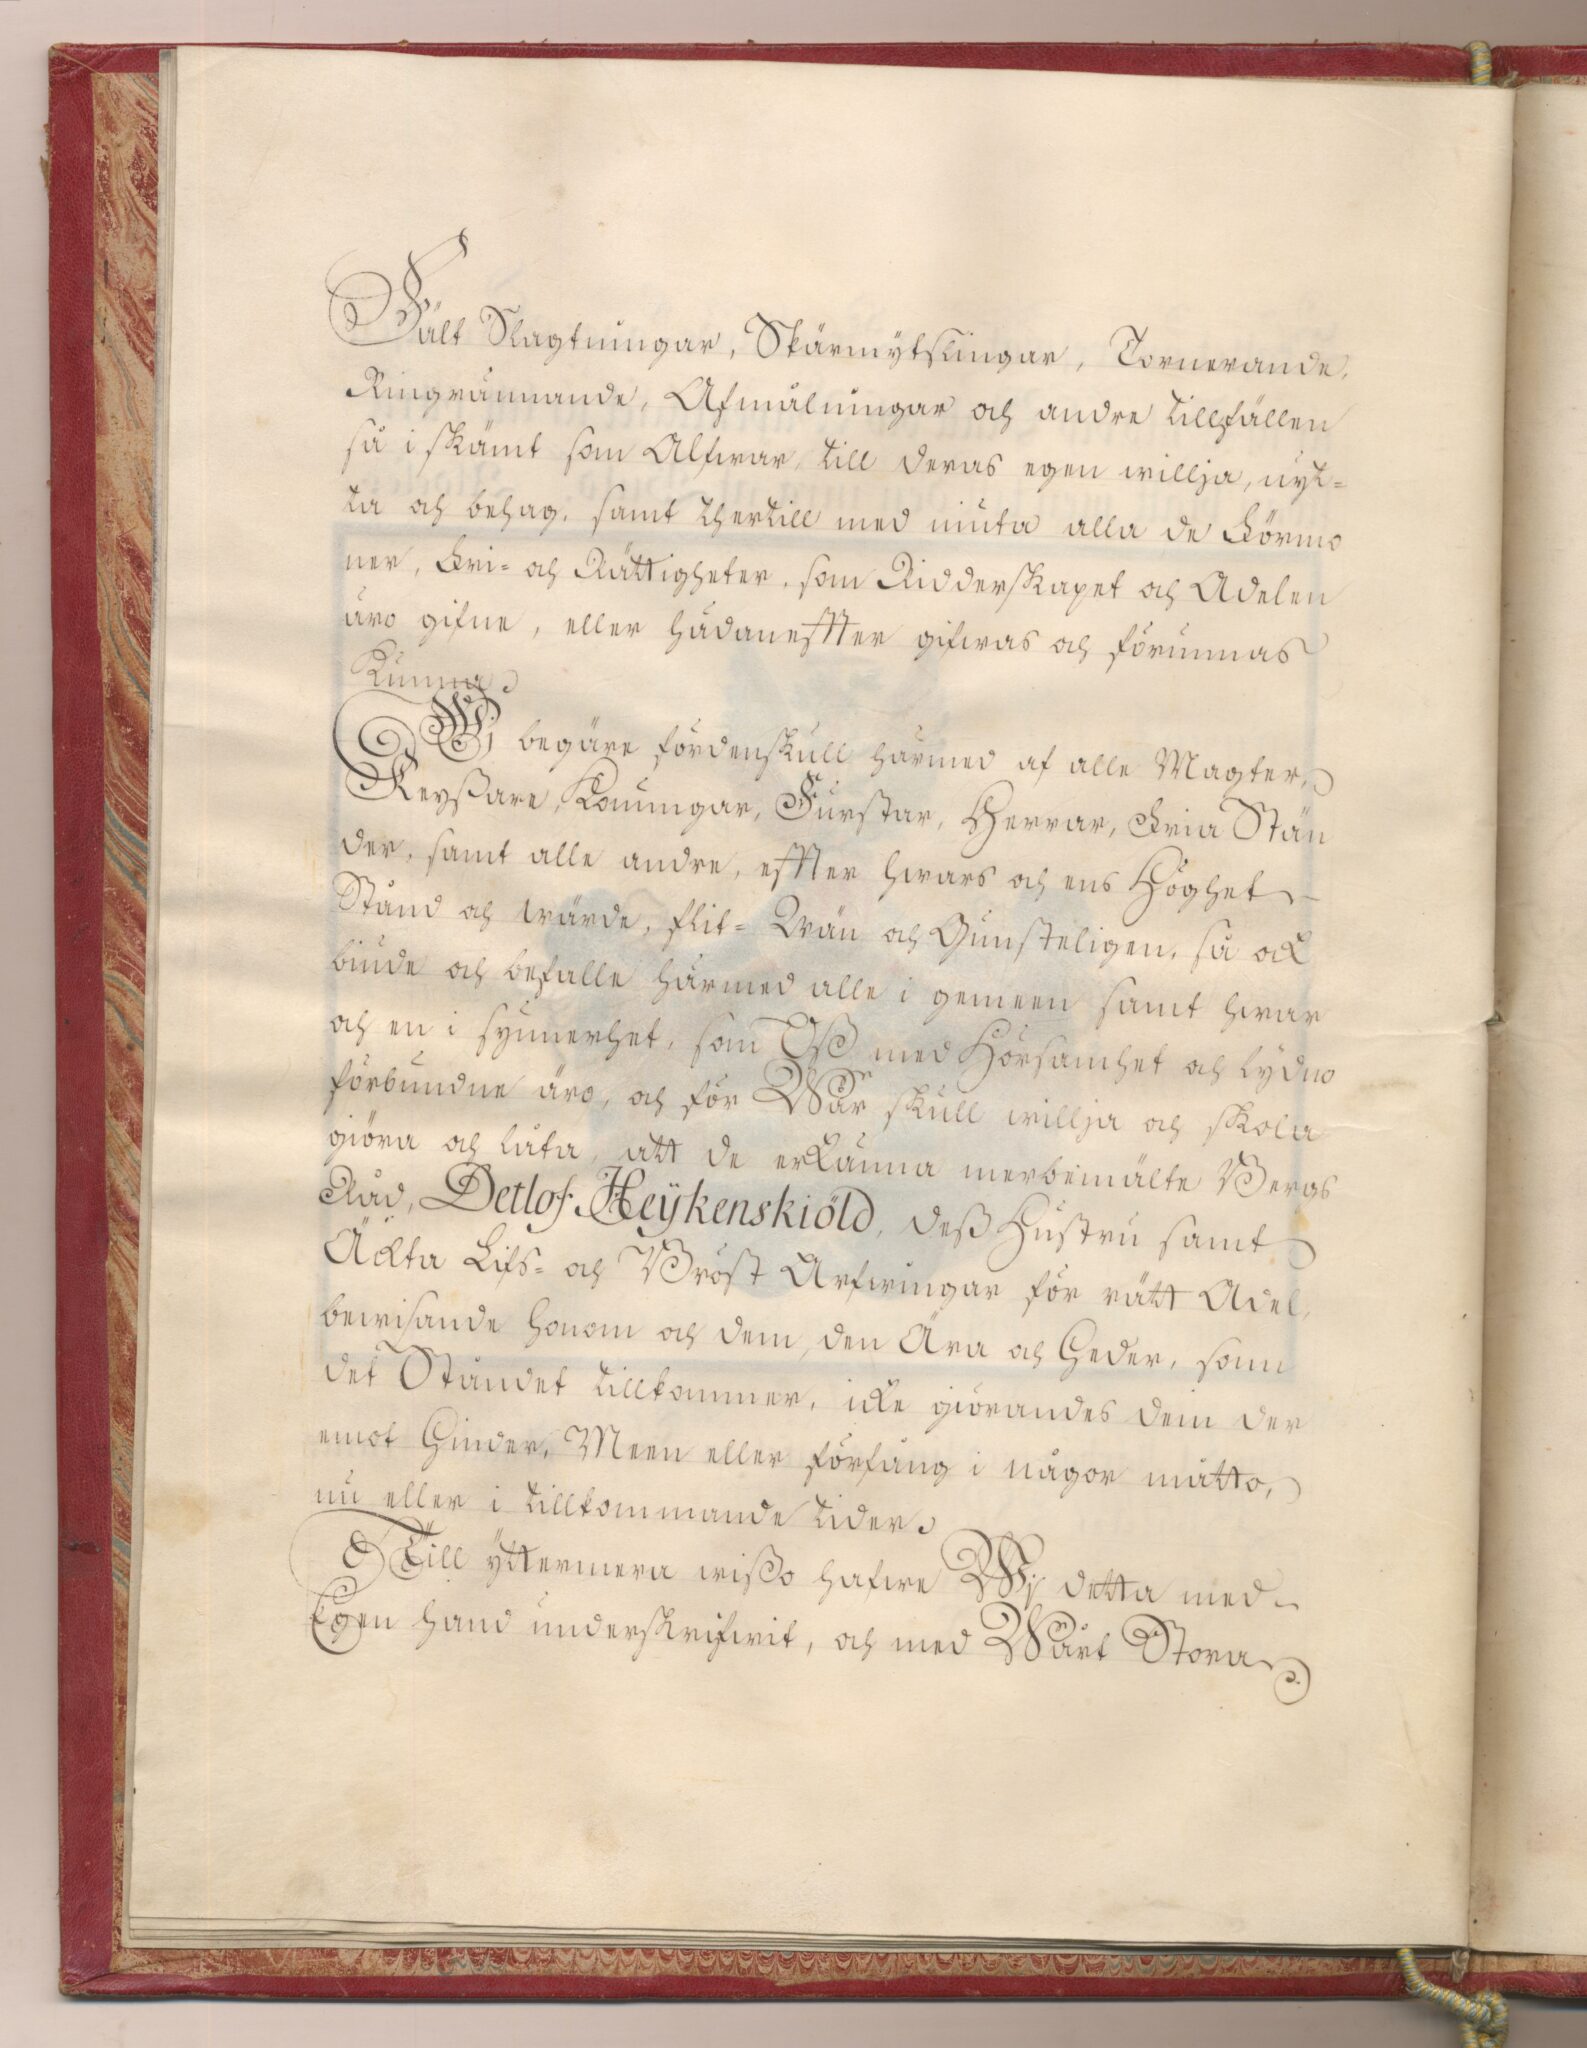 Fält Slagtningar, Skärmytslingar, Tornerande,
Ringrännande, Afmålningar och andre tillfällen
så i skämt som Alfwar, till deras egen willja, nyt-
ta och behag, samt thertill med niuta alla de Förmo
ner, Fri- och Rättigheter, som Ridderskapet och Adelen
äro gifne, eller hädaneffter gifwas och förunnas
Kunna.
Wj begäre fördenskull härmed af alle Magter,
Keyßare, Konungar, Furstar, Herrar, Fria Stän
der, samt alle andre, effter hwars och ens Höghet
Stånd och wärde, flit- Wän och Gunsteligen, så ock
biude och befalle härmed alle i gemeen samt hwar
och en i synnerhet, som Oß med Hörsamhet och lydno
förbundne äro, och för Wår skull willja och skola
giöra och låta, att de erkänna merbemälte Bergs
Råd, Detlof Heÿkenskiöld, deß Hustru samt
Äckta Lifs- och Bröst Arfwingar för rätt Adel,
bewisande honom och dem, den Ära och Heder, som
det Ståndet tillkommer, icke giörandes dem der
emot Hinder, Meen eller förfång i någor måtto,
nu eller i tillkommande tider.
Till ÿttermera wißo hafwe Wj detta med
Egen hand underskrifwit, och med Wårt Stora